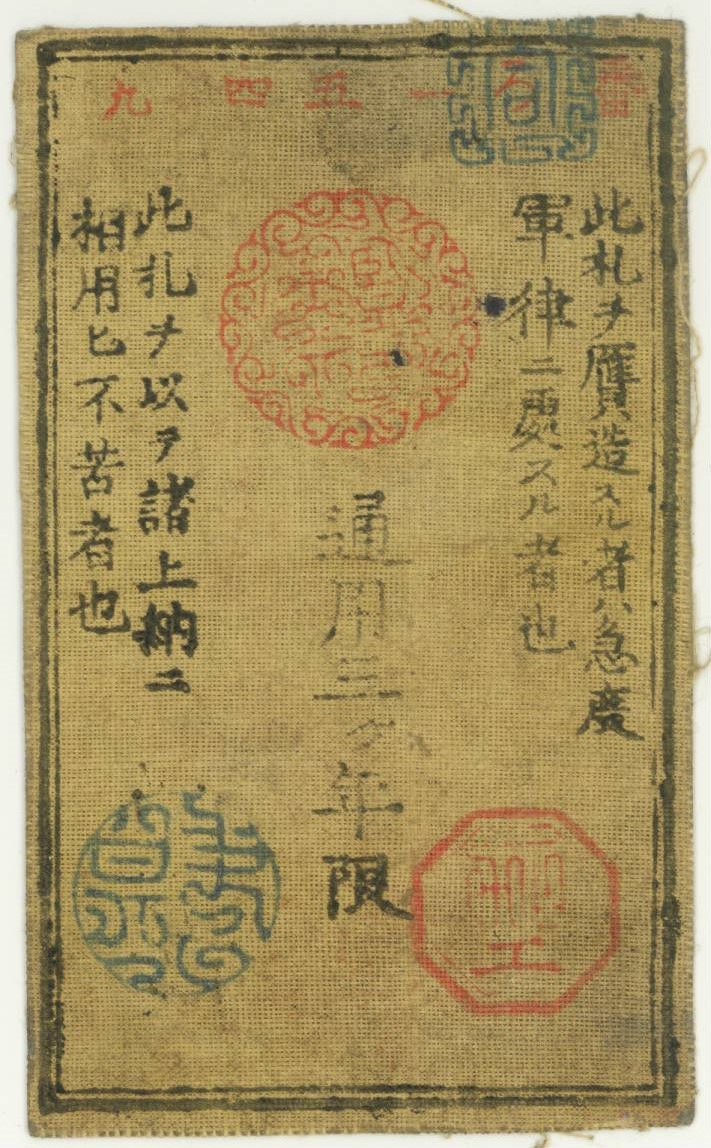 番 一五四九
此札ヲ贋造スル者ハ急度
軍律ニ處スル者也
通用三ケ年限
此札ヲ以テ諸上納ニ
相用ヒ不苦者也